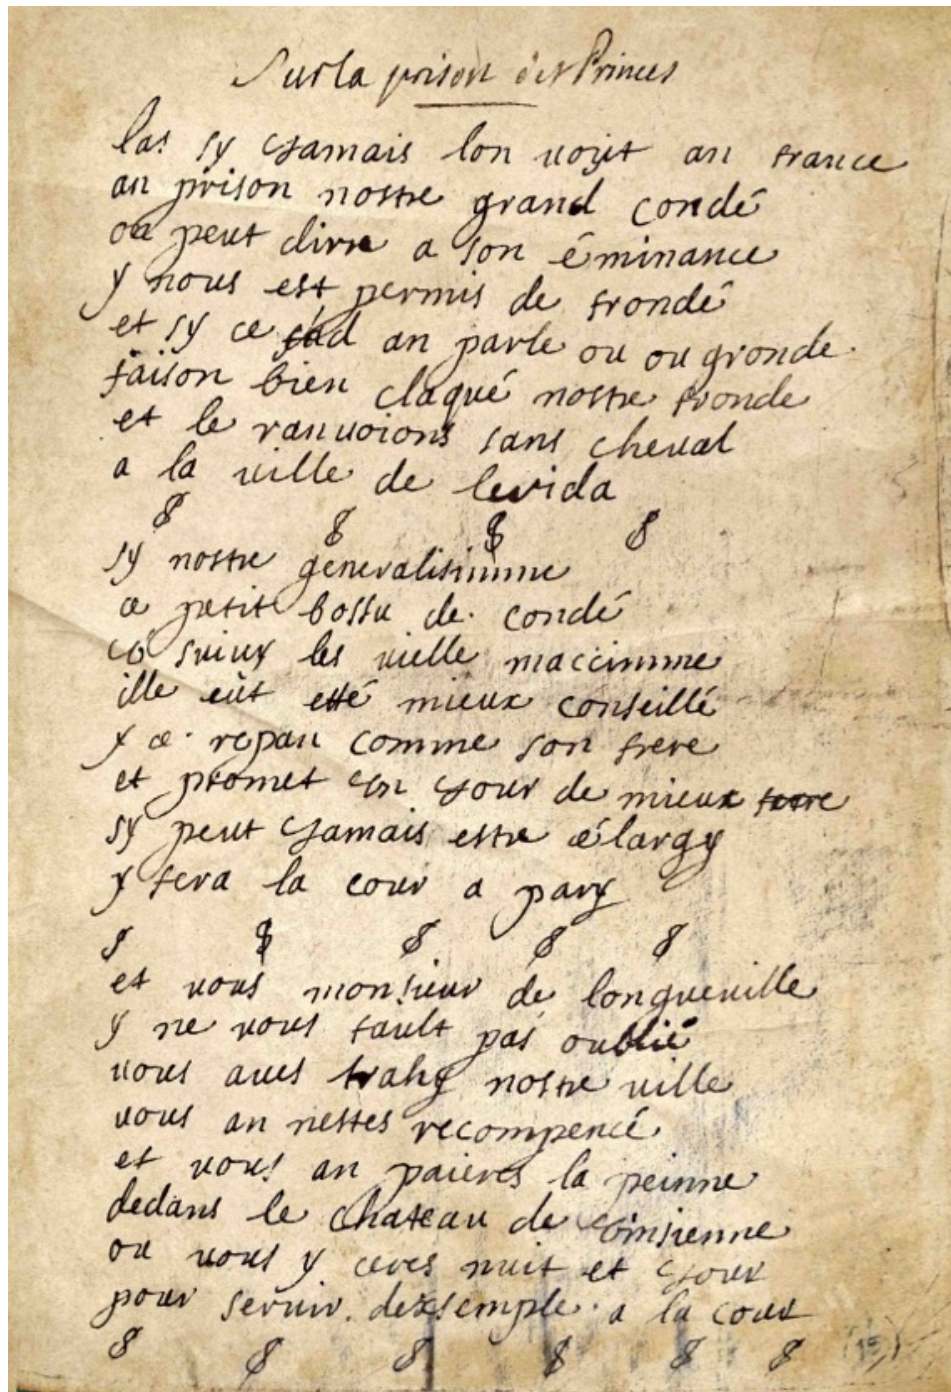 Sur la prison des Princes
las sy jamais lon voyt an france
an prison nostre grand condé
on peut dirre a son éminance
y nous est permis de frondé
et sy ce sud an parle ou ou gronde
faison bien claqué nostre fronde
et le ranvoions sans cheval
a la ville de levida
sy nostre generalisimme
ce petit bossu de condé
suivy les vielle maccimme
ille eût etté mieux conseillé
y ce repan comme son frere
et promet un jour de mieux ferre
sy peut jamais estre élargy
y fera la cour a pary
et vous monsieur de longueville
y ne vous fault pas oublié
vous aves trahy nostre ville
vous an nestes recompencé
et vous an paieres la peinne
dedans le chateau de
ou vous y ceres nuit et jour
pour servir dexsemple a la cour
(15)